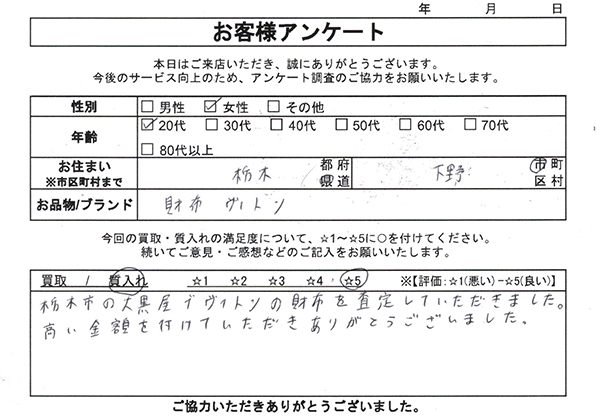 年 月 日
お客様アンケート
本日はご来店いただき、誠にありがとうございます。
今後のサービス向上のため、アンケート調査のご協力をお願いいたします。
性別 □ 男性 ☑ 女性 □ その他
年齢 ☑ 20代 □ 30代 □ 40代 □ 50代 □ 60代 □ 70代
□ 80代以上
お住まい ※市区町村まで 栃木 都府県道 下野 市町区村
お品物/ブランド 財布 ヴィトン
今回の買取・質入れの満足度について、☆1～☆5に○を付けてください。
続いてご意見・ご感想などのご記入をお願いいたします。
買取 / 質入れ ☆1 ☆2 ☆3 ☆4 ☆5 ※【評価:☆1(悪い)-☆5(良い)】
栃木市の大黒屋でヴィトンの財布を査定していただきました。
高い金額を付けていただきありがとうございました。
ご協力いただきありがとうございました。